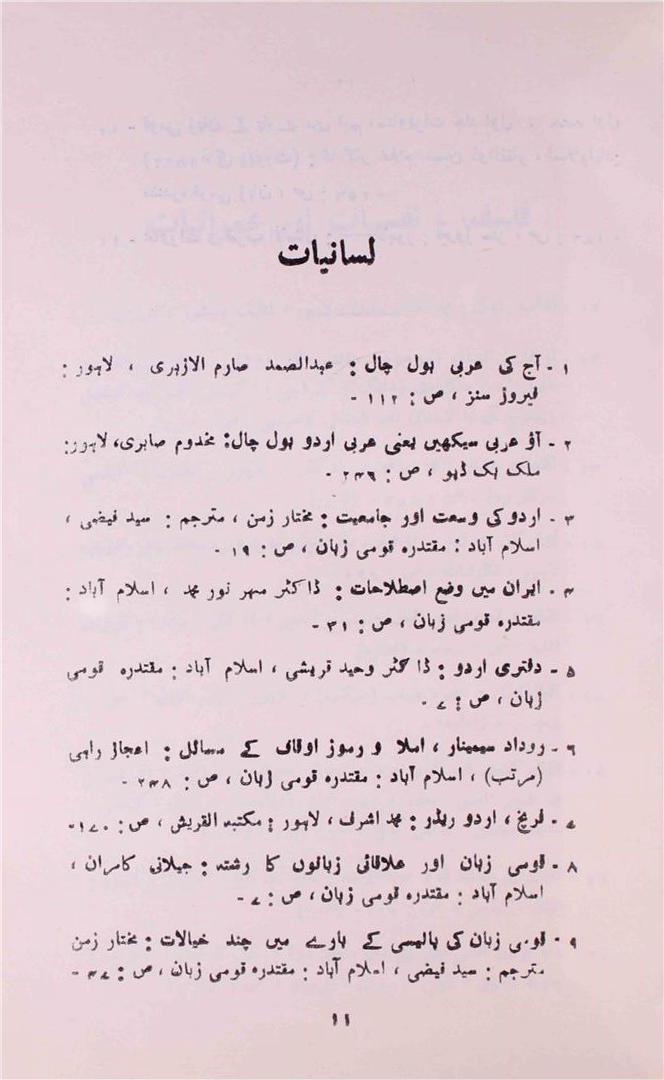 لسانیات
۱ - آج کی عربی بول چال : عبدالصمد صارم الازہری ، لاہور :
فیروز سنز ، ص : ۱۱۲ -
۲ - آؤ عربی سیکھیں یعنی عربی اردو بول چال : مخدوم صابری، لاہور:
ملک بک ڈپو ، ص : ۲۳۶ -
۳ - اردو کی وسعت اور جامعیت : مختار زمن ، مترجم : سید فیضی ،
اسلام آباد : مقتدرہ قومی زبان ، ص : ۱۹ -
۴ - ایران میں وضع اصطلاحات : ڈاکٹر مہر نور محمد ، اسلام آباد :
مقتدرہ قومی زبان ، ص : ۳۱ -
۵ - دفتری اردو : ڈاکٹر وحید قریشی ، اسلام آباد : مقتدرہ قومی
زبان ، ص : ۷ -
۶ - روداد سیمینار ، املا و رموز اوقاف کے مسائل : اعجاز راہی
(مرتب) ، اسلام آباد : مقتدرہ قومی زبان ، ص : ۲۳۸ -
۷ - فریخ ، اردو ریڈر : محمد اشرف ، لاہور : مکتبہ القریش ، ص : ۱۷۰ -
۸ - قومی زبان اور علاقائی زبانوں کا رشتہ : جیلانی کامران ،
اسلام آباد : مقتدرہ قومی زبان ، ص : ۷ -
۹ - قومی زبان کی پالیسی کے بارے میں چند خیالات : مختار زمن
مترجم : سید فیضی ، اسلام آباد : مقتدرہ قومی زبان ، ص : ۴۷ -
۱۱